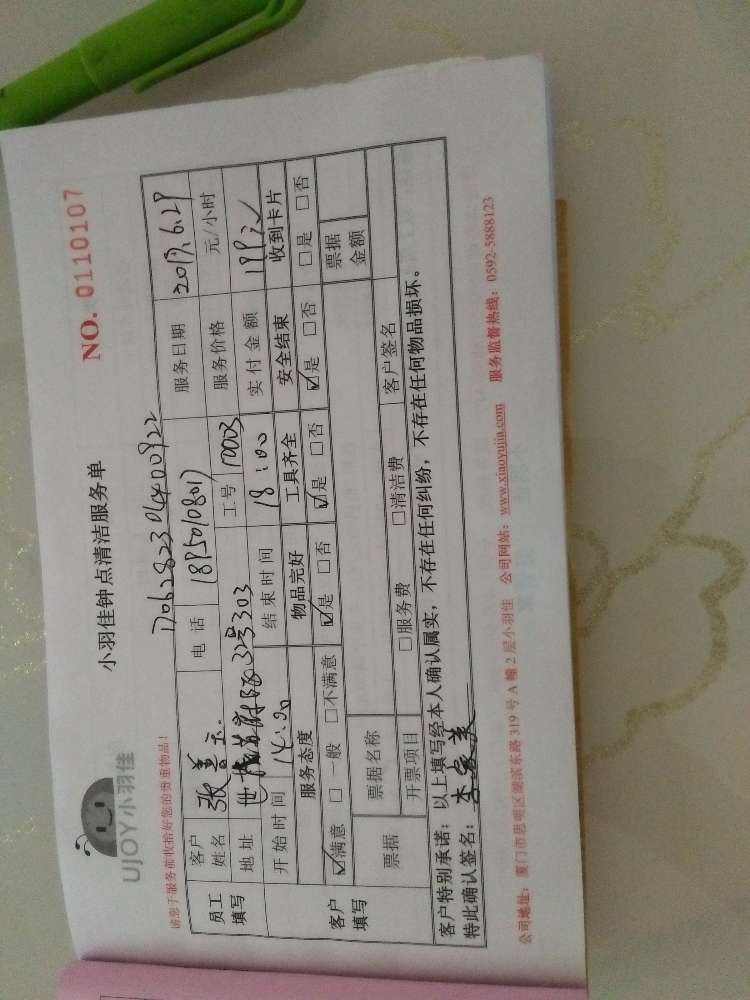 UJOY小羽佳
小羽佳钟点清洁服务单
NO. 0110107
请您于服务前收拾好您的贵重物品!
员工填写
客户姓名 张 电话 18950108017 服务日期 2017.6.29
地址 325号303 工号 服务价格 元/小时
开始时间 14:00 结束时间 18:00 实付金额 199元
客户填写
服务态度 物品完好 工具齐全 安全结束 收到卡片
☑满意 □一般 □不满意 ☑是 □否 ☑是 □否 ☑是 □否 □是 □否
票据 票据名称 票据金额
开票项目 □服务费 □清洁费 客户签名
客户特别承诺:以上填写经本人确认属实,不存在任何纠纷,不存在任何物品损坏。
特此确认签名:
公司地址:厦门市思明区湖滨东路319号A幢2层小羽佳 公司网站:www.xiaoyujia.com 服务监督热线:0592-5888123